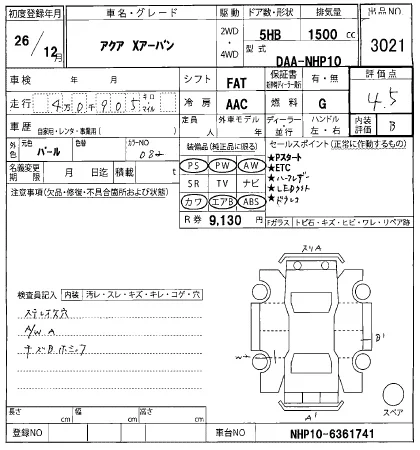 初度登録年月 車名・グレード 駆動 ドア数・形状 排気量 出品NO
26 / 12月 アクア Xアーバン 2WD ・ 4WD 5HB 1500 cc 3021
型式 DAA-NHP10
車検 年 月 シフト FAT 保証書 有・無 評価点
走行 4万0千905 キロ・マイル 冷房 AAC 燃料 G 4.5
車歴 自家用・レンタ・事業用( ) 定員 人 外車モデル 年 ディーラー・並行 ハンドル 左・右 内装評価 B
外色 元色 パール 色替 カラーNO 082
装備品(純正品に限る) セールスポイント(正常に作動するもの)
名義変更期限 月 日迄 積載 t
PS PW AW
SR TV ナビ
カワ エアB ABS
★Pスタート
★ETC
★ハーフレザー
★LEDライト
★ドラレコ
注意事項(欠品・修復・不具合箇所および状態)
R券 9,130 円
Fガラス トビ石・キズ・ヒビ・ワレ・リペア跡
スリA
検査員記入 内装 汚レ・スレ・キズ・キレ・コゲ・穴
A/W A
B1
A1
スペア
長さ cm 幅 cm 高さ cm
登録NO 車台NO NHP10-6361741